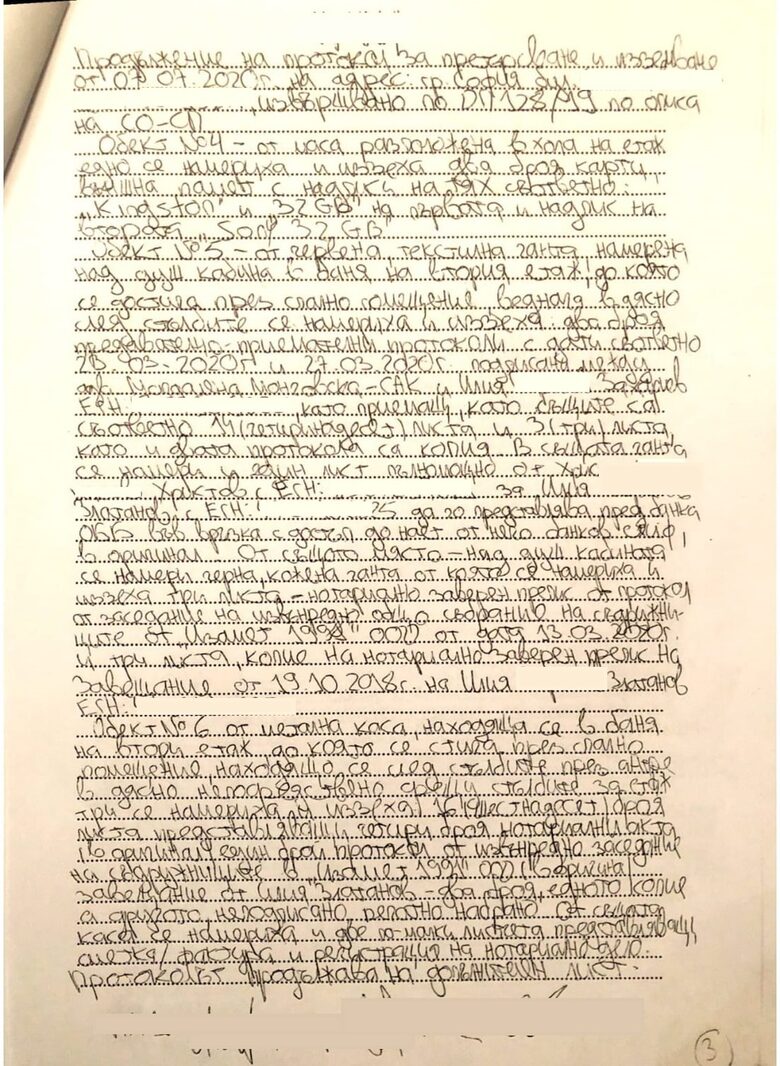 Продължение на протокол за претърсване и изземване
от 07.07.2020г. на адрес: гр. София бул.
, извършвано по ДП 128/19 по описа
на СО-СП
Обект №4 – от маса разположена в хола на етаж
едно се намериха и иззеха два броя карти
външна памет с надпис на тях съответно:
„Kingston" и „32 GB" на първата и надпис на
втората „Sony 32 GB"
Обект №5 – от червена, текстилна чанта, намерена
над душ кабина в баня на втория етаж, до която
се достига през спално помещение веднага в дясно
след стълбите се намериха и иззеха: два броя
предавателно-приемателни протоколи с дати съответно
03.2020г и 27.03.2020г. подписани между
адв. и Илия Захариев
ЕГН: като приемащ, като същите са
съответно 14 (четиринадесет) листа и 3 (три) листа,
като и двата протокола са копия. В същата чанта
се намери и един лист пълномощно от Хрис
Христов с ЕГН: за Илия
Златанов с ЕГН: 25 да го представлява пред банка
ОББ във връзка с достъп до нает от него банков сейф,
в оригинал. От същото място – над душ кабината
се намери черна, кожена чанта от която се намериха и
иззеха три листа – нотариално заверен препис от протокол
от заседание на извънредно общо събрание на съдружни-
ците от „Изамет 1991" ООД от дата 13.03.2020г.
и три листа, копие на нотариално заверен препис на
Завещание от 19.10.2018г. на Илия Златанов
ЕГН:
Обект №6 от метална каса, находяща се в баня
на втори етаж до която се стига през спално
помещение, находящо се след стълбите през антре
в дясно непосредствено срещу стълбите за етаж
три се намериха и иззеха) 16 (шестнадесет) броя
листа представляващи четири броя нотариални акта
(в оригинал) един брой протокол от извънредно заседание
на съдружниците в „Изамет 1991" ООД (в оригинал)
завещание от Илия Златанов – два броя, едното копие
а другото, неподписано, ръчно От същата
каса се намериха и две по-малки листчета представляващи
сметка/фактура и регистрация на нотариално дело.
Протоколът продължава на допълнителен лист.
3